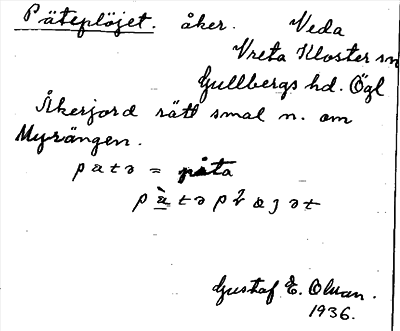 Päteplöjet. åker. Veda
Vreta Kloster sn
Gullbergs hd. Ögl
Åkerjord rätt smal n. om
Myrängen.
p a t ə = påta
Gustaf E. Olvan.
1936.